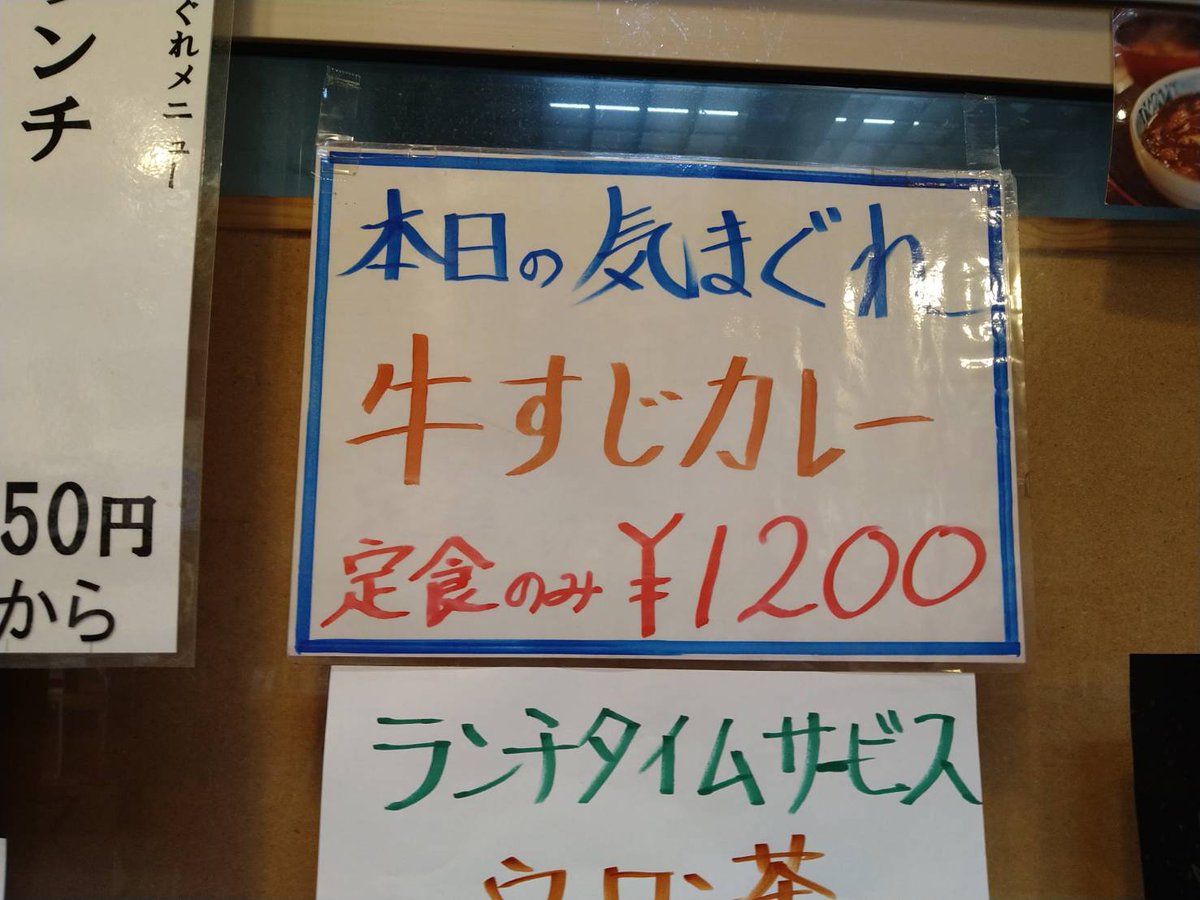 ぐれメニュー
ンチ
50円
から
本日の気まぐれ
牛すじカレー
定食のみ ¥1200
ランチタイムサービス
ウーロン茶